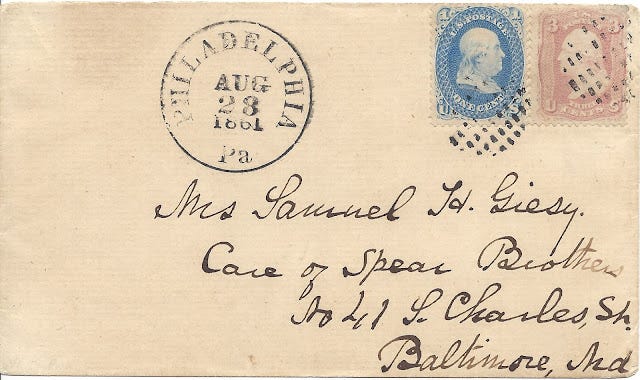 PHILADELPHIA
AUG
28
1861
Pa
U.S. POSTAGE
ONE CENT
3 3
U S
CENTS
Mrs Samuel H. Giesy.
Care of Spear Brothers
No 41 S. Charles, St.
Baltimore, Md